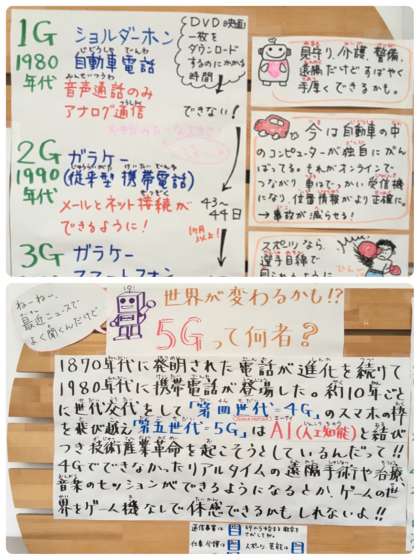 1G
1980
年代
ショルダーホン
自動車電話
音声通話のみ
アナログ通信
DVD映画
一枚を
ダウンロード
するのにかかる
時間
できない!
2G
1990
年代
ガラケー
(従来型携帯電話)
メールとネット接続が
できるように!
43〜
44日
1ヶ月以上!
3G
ガラケー
見守り、介護、警備、
遠隔だけどすばやく
手厚くできるかも。
今は自動車の中
のコンピューターが独自にがん
ばってる。それがオンラインで
つながり車はでっかい受信機
になり、位置情報がより正確に。
→事故が減らせる!
スポーツなら、
選手目線で
ねーねー、
最近ニュースで
よく聞くんだけど
世界が変わるかも!?
5Gって何者?
1870年代に発明された電話が進化を続けて
1980年代に携帯電話が登場した。約10年ごと
に世代交代をして「第四世代=4G」のスマホの枠
を飛び越え「第五世代=5G」はAI(人工知能)と結び
つき技術産業革命を起こそうとしているんだって!!
4Gでできなかったリアルタイムの遠隔手術や治療、
音楽のセッションができるようになるとか、ゲームの世
界をゲーム機なしで体感できるかもしれないよ!!